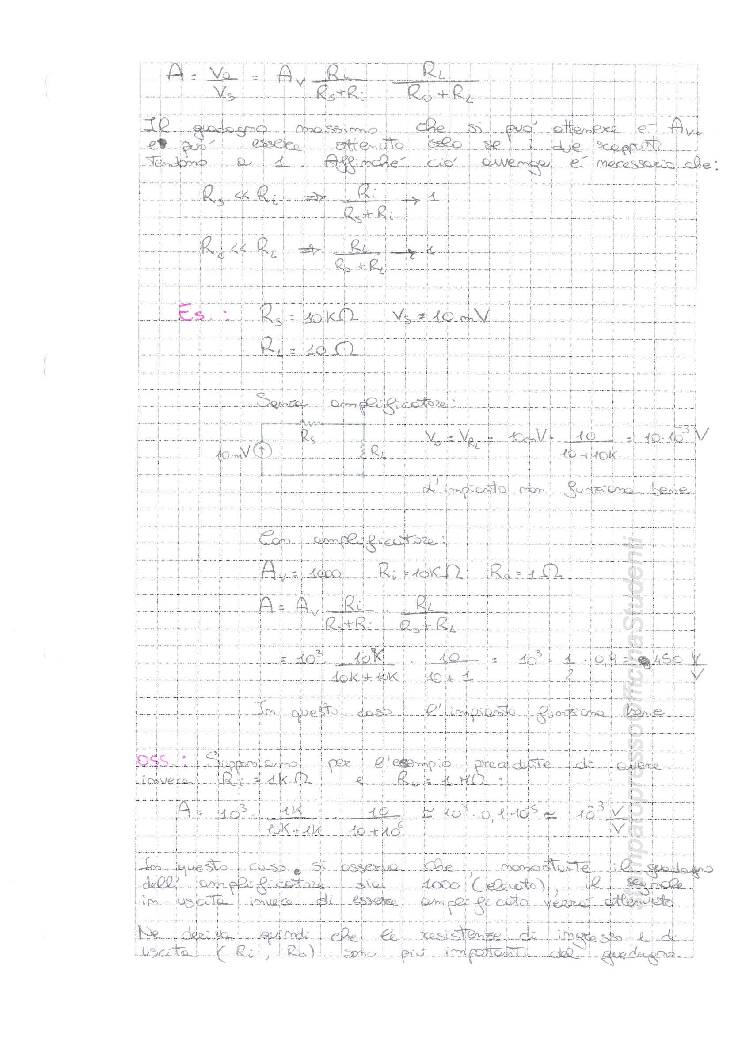 A = Vo/Vs = Av Ri/(Rs+Ri) RL/(Ro+RL)
Il guadagno massimo che si può ottenere è Av,
e può essere ottenuto solo se i due rapporti
tendono a 1. Affinché ciò avvenga è necessario che:
Rs << Ri ⇒ Ri/(Rs+Ri) → 1
Ro << RL ⇒ RL/(Ro+RL) → 1
Es.: Rs = 10KΩ Vs = 10mV
RL = 10Ω
Senza amplificatore:
10mV Rs RL Vo = VRL = 10mV · 10/(10+10K) = 10·10⁻³ V
L'impianto non funziona bene
Con amplificatore:
Av = 1000 Ri = 10KΩ Ro = 1Ω
A = Av Ri/(Rs+Ri) RL/(Ro+RL)
= 10³ · 10K/(10K+ K) · 10/(10+1) = 10³ · 1/2 · 0,9 = 450 V/V
In questo caso l'impianto funziona bene
OSS.: Supponiamo per l'esempio precedente di avere
invece Ri = 1KΩ e Ro = 1MΩ:
A = 10³ · 1K/( K+1K) 10/(10+10⁶) ≃ 10³ · 0,1·10⁻⁵ ≃ 10⁻³ V/V
In questo caso si osserva che, nonostante il guadagno
dell'amplificatore sia 1000 (elevato), il segnale
in uscita invece di essere amplificato verrà attenuato
Ne deriva quindi che le resistenze di ingresso e di
uscita (Ri, Ro) sono più importanti del guadagno.
StampatopressoOfficinaStudenti